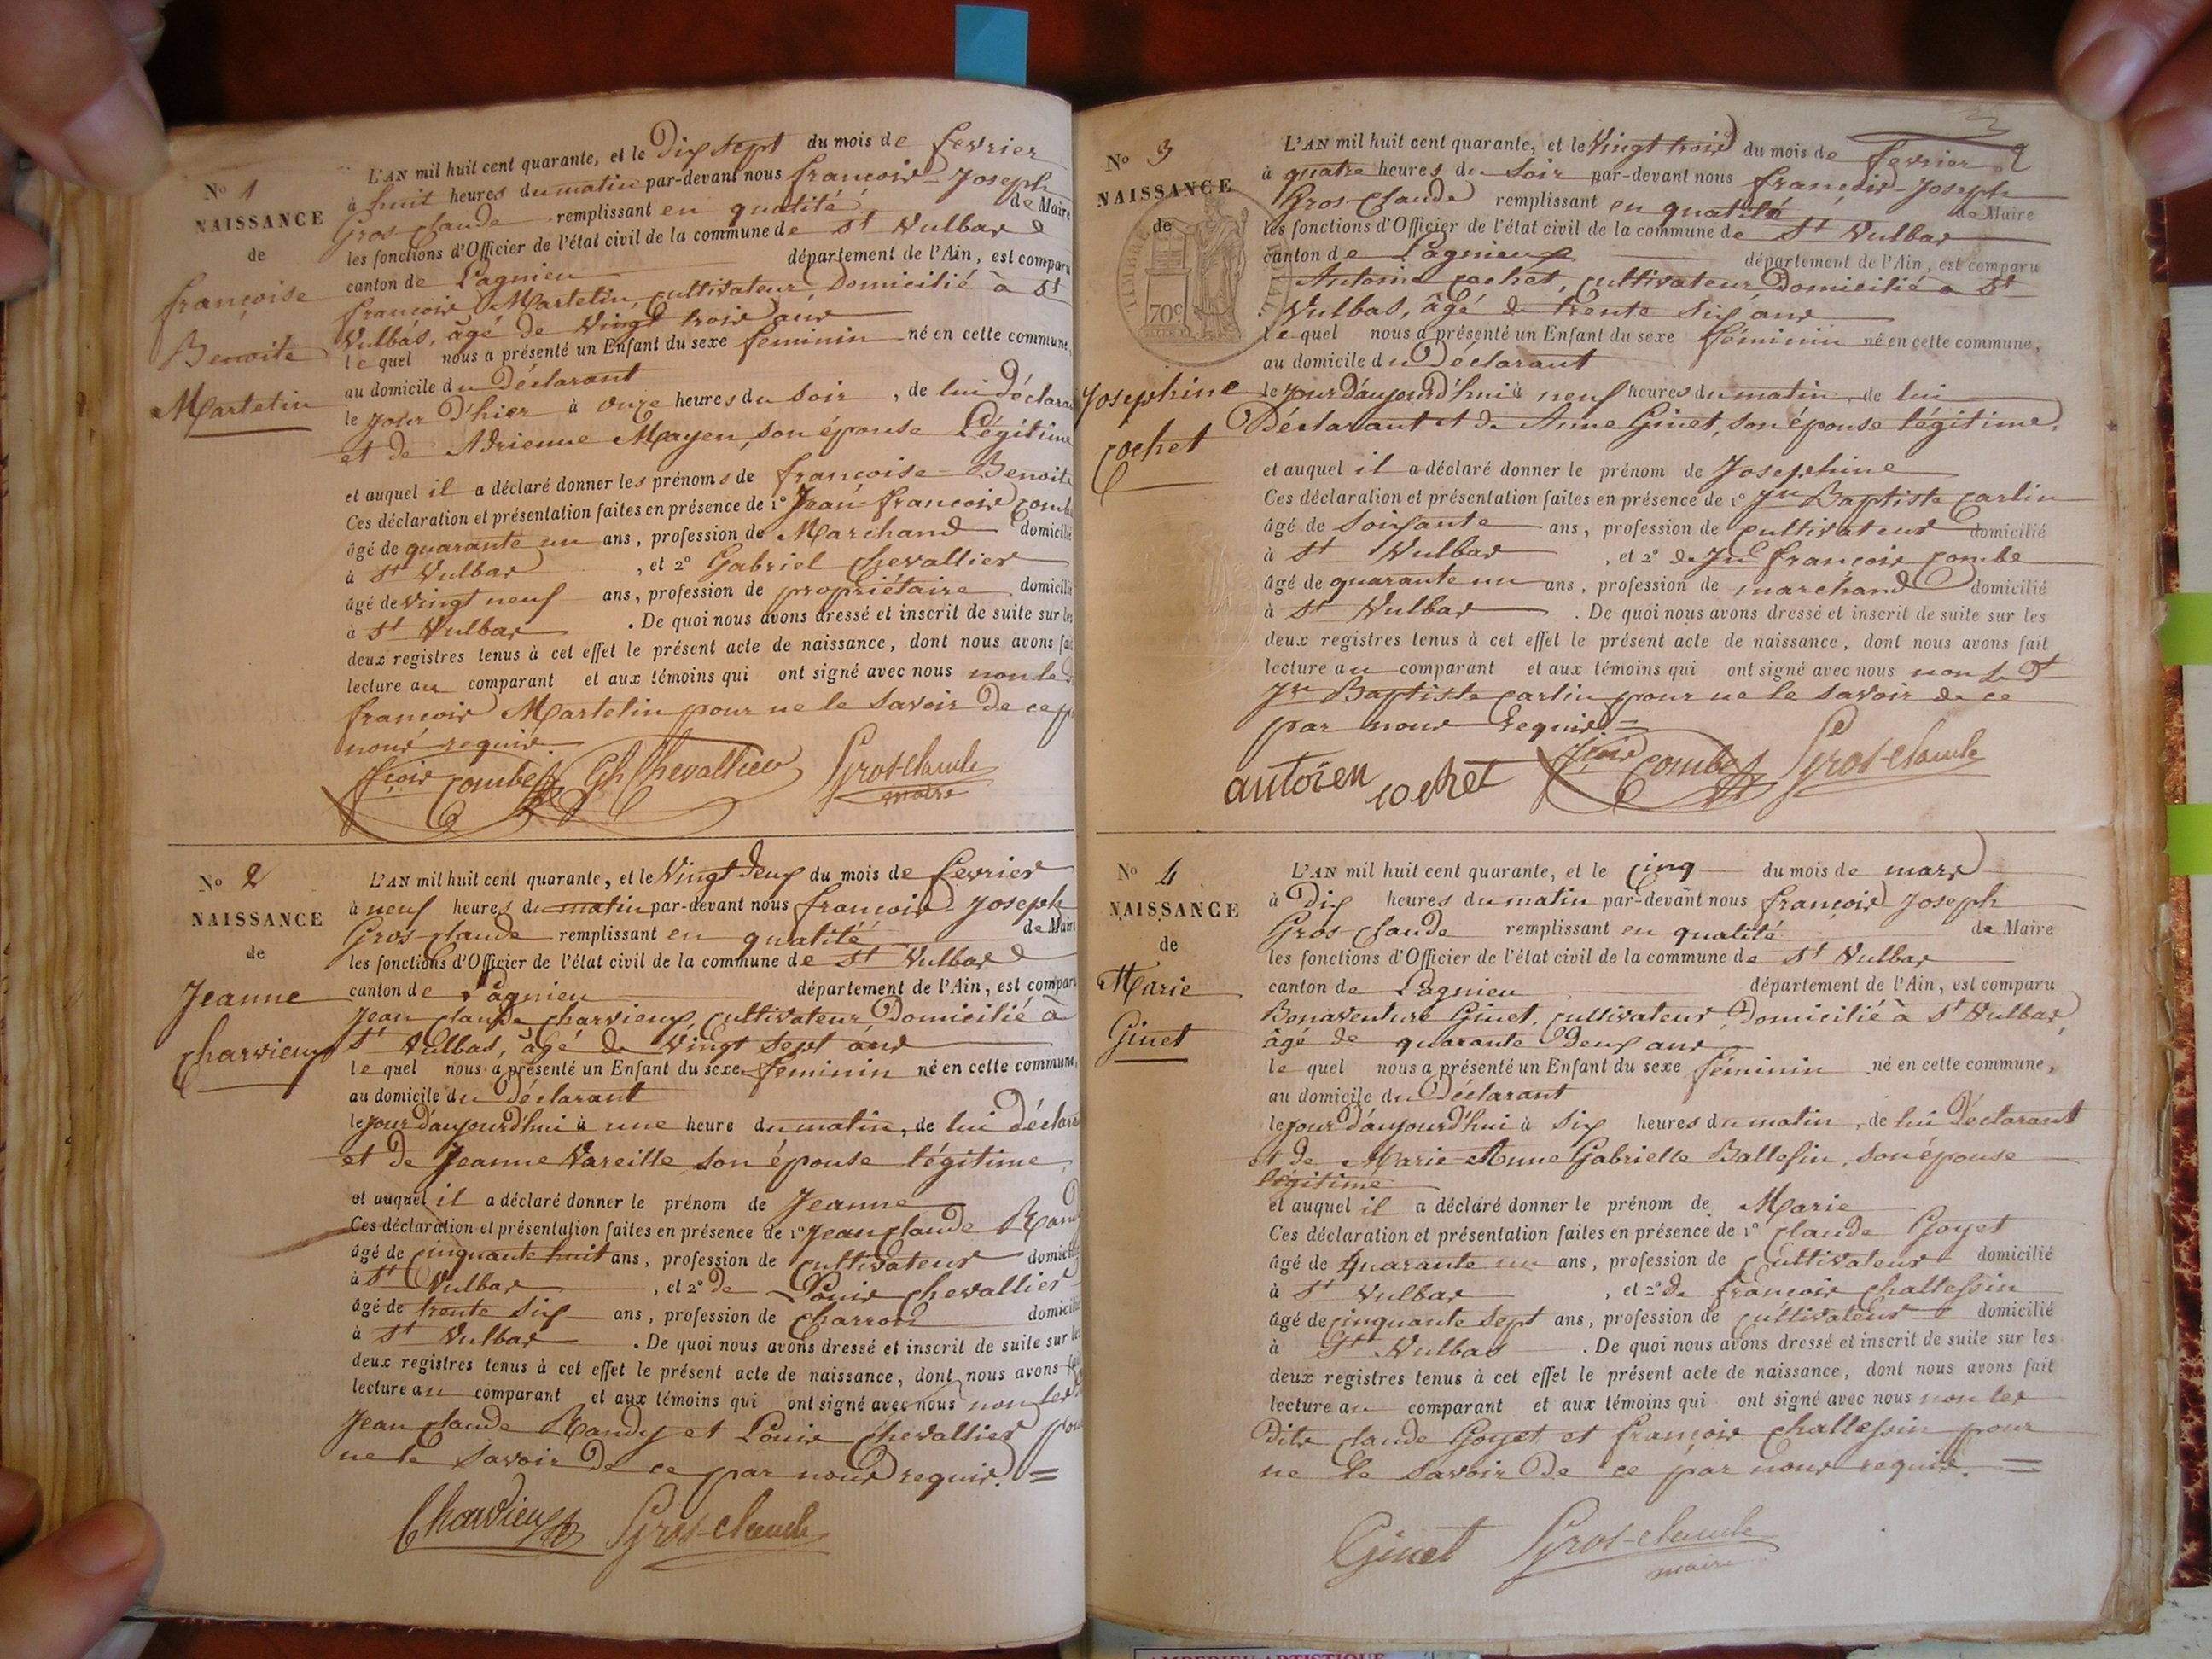 N° 1
NAISSANCE
de
françoise
Benoite
Martelin
L'AN mil huit cent quarante, et le Dix sept du mois de fevrier
à huit heures du matin par-devant nous françois-Joseph
Gros-claude remplissant en qualité de Maire
les fonctions d'Officier de l'état civil de la commune de St Vulbas
canton de Lagnieu département de l'Ain, est comparu
françois Martelin, cultivateur, Domicilié à St
Vulbas, âgé de Vingt trois ans
le quel nous a présenté un Enfant du sexe feminin né en cette commune,
au domicile du Déclarant
le jour d'hier à onze heures du soir, de lui Déclara
et de Adrienne Mayen, son épouse Légitime
et auquel il a déclaré donner les prénoms de françoise-Benoite
Ces déclaration et présentation faites en présence de 1° Jean-françois Combe
âgé de quarante un ans, profession de Marchand domicilié
à St Vulbas, et 2° Gabriel chevallier
âgé de vingt neuf ans, profession de propriétaire domicilié
à St Vulbas. De quoi nous avons dressé et inscrit de suite sur les
deux registres tenus à cet effet le présent acte de naissance, dont nous avons fai
lecture au comparant et aux témoins qui ont signé avec nous non le d
françois Martelin pour ne le savoir de ce p
nous requis.
fçois Combe Gb Chevallier Gros-claude
maire
N° 2
NAISSANCE
de
Jeanne
charvieux
L'AN mil huit cent quarante, et le Vingt Deux du mois de fevrier
à neuf heures du matin par-devant nous françois-Joseph
Gros-claude remplissant en qualité de Maire
les fonctions d'Officier de l'état civil de la commune de St Vulbas
canton de Lagnieu département de l'Ain, est comparu
Jean claude charvieux, cultivateur, Domicilié à
St Vulbas, âgé de Vingt sept ans
le quel nous a présenté un Enfant du sexe feminin né en cette commune,
au domicile du Déclarant
le jour d'aujourd'hui à une heure du matin, de lui déclara
et de Jeanne Vareille son épouse légitime,
et auquel il a déclaré donner le prénom de Jeanne
Ces déclaration et présentation faites en présence de 1° Jean claude Rand
âgé de cinquante huit ans, profession de cultivateur domicilié
à St Vulbas, et 2° de Louis chevallier
âgé de trente six ans, profession de charron domicilié
à St Vulbas. De quoi nous avons dressé et inscrit de suite sur les
deux registres tenus à cet effet le présent acte de naissance, dont nous avons fai
lecture au comparant et aux témoins qui ont signé avec nous non les
Jean claude Randy et Louis chevallier pour
ne le savoir de ce par nous requis. =
Charvieux Gros-claude
N° 3
NAISSANCE
de
TIMBRE
70c
Josephine
cochet
L'AN mil huit cent quarante, et le Vingt trois du mois de fevrier
à quatre heures du soir par-devant nous françois-Joseph
Gros-claude remplissant en qualité de Maire
les fonctions d'Officier de l'état civil de la commune de St Vulbas
canton de Lagnieux département de l'Ain, est comparu
Antoine cochet, cultivateur, Domicilié à St
Vulbas, âgé de trente six ans
le quel nous a présenté un Enfant du sexe féminin né en cette commune,
au domicile du Déclarant
le jour d'aujourd'hui à neuf heures du matin, de lui
Déclarant et de Anne Ginet, son épouse légitime,
et auquel il a déclaré donner le prénom de Josephine
Ces déclaration et présentation faites en présence de 1° Jn Baptiste Carlin
âgé de soixante ans, profession de cultivateur domicilié
à St Vulbas, et 2° de Jn françois combe
âgé de quarante un ans, profession de marchand domicilié
à St Vulbas. De quoi nous avons dressé et inscrit de suite sur les
deux registres tenus à cet effet le présent acte de naissance, dont nous avons fait
lecture au comparant et aux témoins qui ont signé avec nous non le Dt
Jn Baptiste carlin pour ne le savoir de ce
par nous requis =
autoien cochet fçois Combe Gros-claude
N° 4
NAISSANCE
de
Marie
Ginet
L'AN mil huit cent quarante, et le cinq du mois de mars
à Dix heures du matin par-devant nous françois Joseph
Gros claude remplissant en qualité de Maire
les fonctions d'Officier de l'état civil de la commune de St Vulbas
canton de Lagnieu département de l'Ain, est comparu
Bonaventure Ginet, cultivateur, Domicilié à St Vulbas,
âgé de quarante Deux ans
le quel nous a présenté un Enfant du sexe féminin né en cette commune,
au domicile du Déclarant
le jour d'aujourd'hui à six heures du matin, de lui Déclarant
et de Marie Anne Gabrielle Ballefin, son épouse
légitime
et auquel il a déclaré donner le prénom de Marie
Ces déclaration et présentation faites en présence de 1° claude Goyet
âgé de quarante un ans, profession de cultivateur domicilié
à St Vulbas, et 2° de françois challessin
âgé de cinquante sept ans, profession de cultivateur domicilié
à St Vulbas. De quoi nous avons dressé et inscrit de suite sur les
deux registres tenus à cet effet le présent acte de naissance, dont nous avons fait
lecture au comparant et aux témoins qui ont signé avec nous non les
Dits claude Goyet et françois challessin pour
ne le savoir De ce par nous requis. =
Ginet Gros-claude
maire